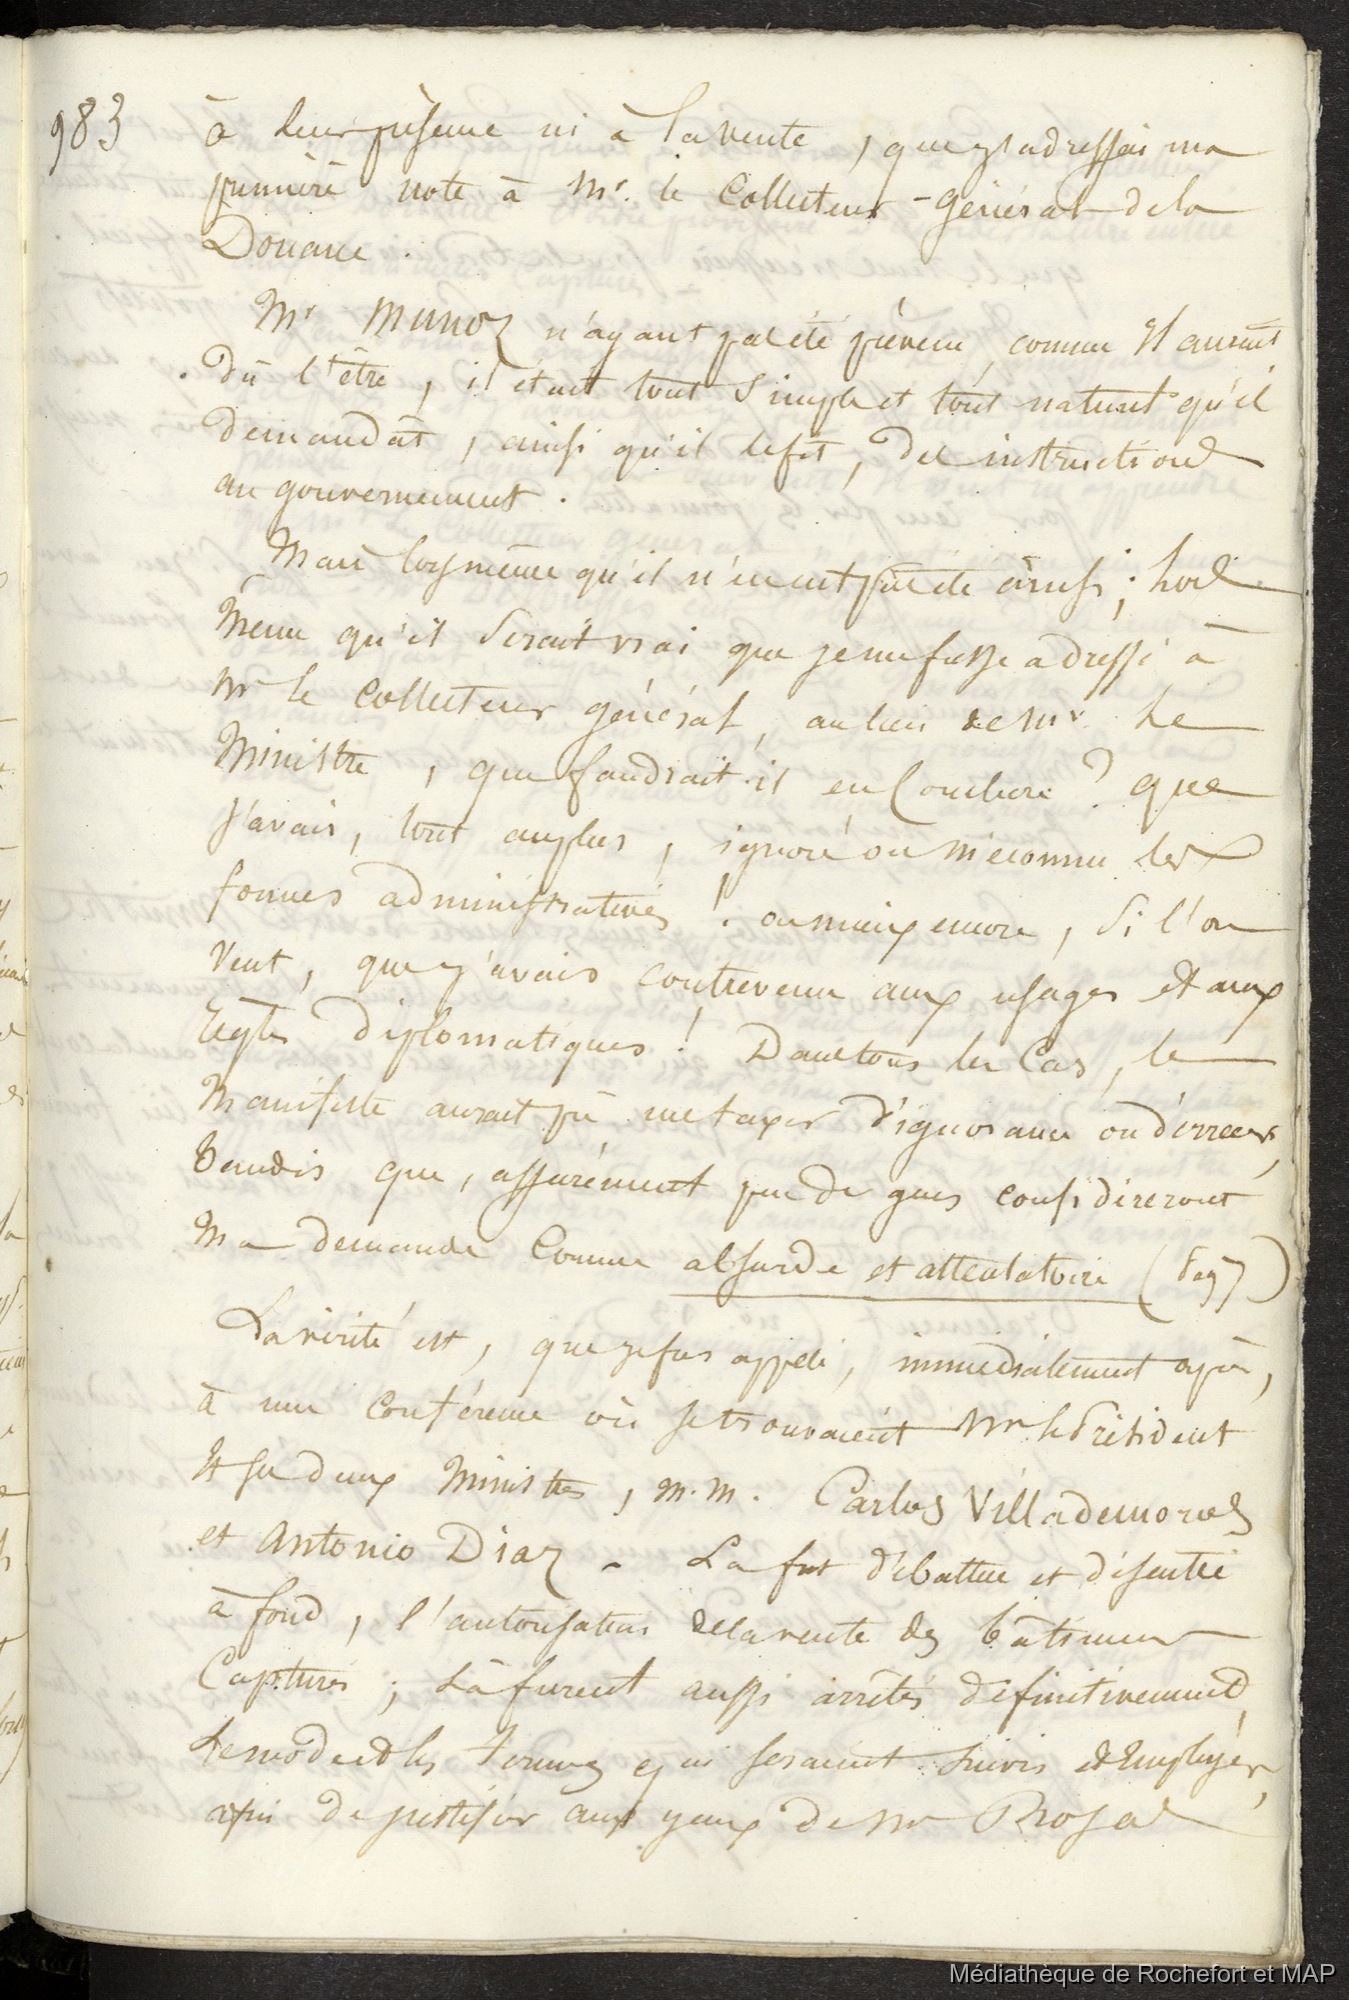 983
à leur présence ni à la vente, que j'adressai ma
première note à Mr. le Collecteur-général de la
Douane.
Mr Munoz n'ayant pas été prévenu, comme Il aurait
dû l'être, il était tout simple et tout naturel qu'il
demandât, ainsi qu'il le fit, des instructions
au gouvernement.
Mais lors même qu'il n'en eut pas été ainsi; lors
même qu'il serait vrai que je me fusse adressé à
Mr le Collecteur général, au lieu de Mr. Le
Ministre, que faudrait-il en Conclure? que
J'avais, tout au plus, ignoré ou méconnu les
formes administratives! ou mieux encore, si l'on
veut, que j'avais contrevenu aux usages et aux
règles diplomatiques! Dans tous les Cas, le
Manifeste aurait pu me taxer d'ignorance ou d'erreur,
tandis que, assurément peu de gens considéreront
Ma demande Comme absurde et attentatoire (
La vérité est, que je fus appelé, immédiatement après,
à une Conférence où se trouvaient Mr le Président
et ses deux Ministres, M.M. Carlos Villademoros
et Antonio Diaz - Là fut débattue et discutée
à fond, l'autorisation de la vente des bâtimens
Capturés; Là furent aussi arrêtés définitivement,
Le mode et les formes qui seraient suivis et Employés,
afin de justifier aux yeux de Mr Rosas
Médiathèque de Rochefort et MAP